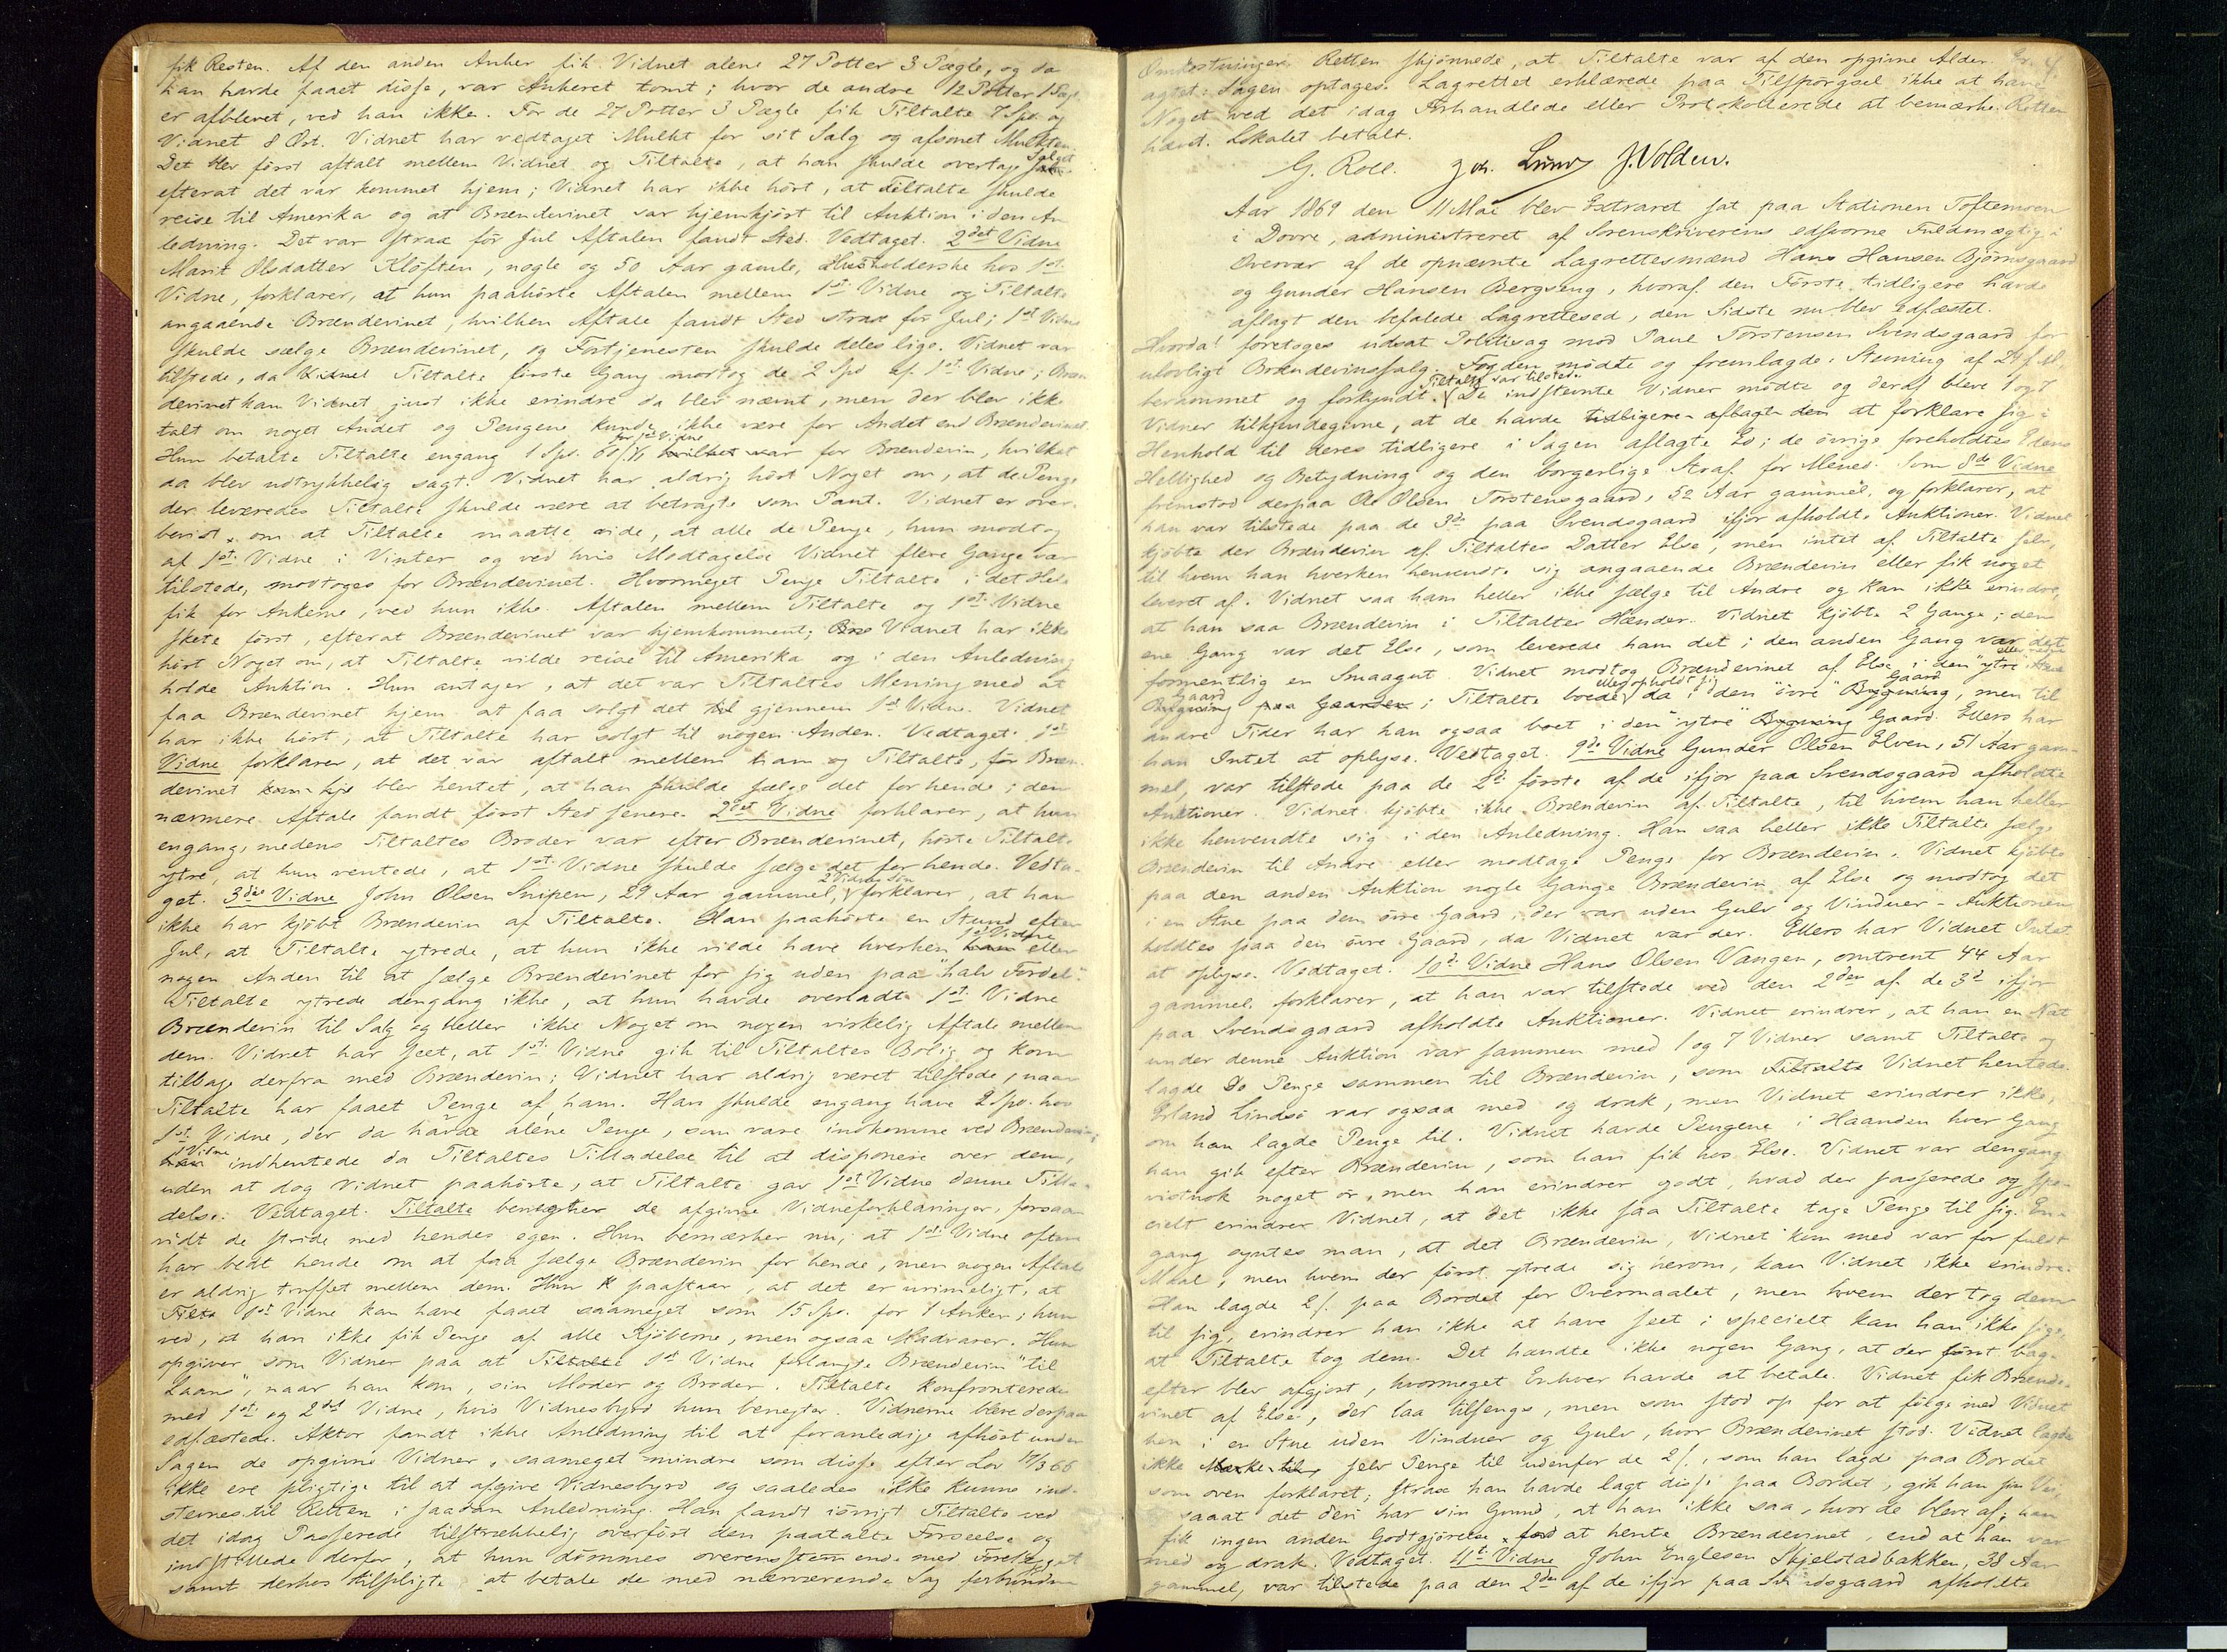 fik Resten. Af den anden Anker fik Vidnet alene 27 Potter 3 Pægle, og da
han havde faaet disse, var Ankeret tomt; hvor de andre 12 Potter 1 Pægl
er afblevet, ved han ikke. For de 27 Potter 3 Pægle fik Tiltalte 7 Spd. og
Vidnet 8 Ort. Vidnet har vedtaget Mulkt for sit Salg og afsonet Mulkten.
Det blev først aftalt mellem Vidnet og Tiltalte, at han skulde overtage Salget
efterat det var kommet hjem; Vidnet har ikke hørt, at Tiltalte skulde
reise til Amerika og at Brændevinet var hjemkjørt til Auktion i den An
ledning. Det var strax før Jul Aftalen fandt Sted. Vedtaget. 2det Vidne
Marit Olsdatter Kløften, nogle og 50 Aar gamle, Husholderske hos 1ste
Vidne, forklarer, at hun paahørte Aftalen mellem 1ste Vidne og Tiltalte
angaaende Brændevinet, hvilken Aftale fandt Sted strax før Jul; 1ste Vidne
skulde sælge Brændevinet, og Fortjenesten skulde deles lige. Vidnet var
tilstede, da Vidnet Tiltalte første Gang modtog de 2 Spd af 1ste Vidne; Bræn
devinet kan Vidnet just ikke erindre da blev nævnt, men der blev ikke
talt om noget Andet og Pengene kunde ikke være for Andet end Brændevinet.
Hun betalte Tiltalte for 1st Vidne engang 1 Spd. 60 ß hvilket var for Brændevin, hvilket
da blev udtrykkelig sagt. Vidnet har aldrig hørt Noget om, at de Penge
der leveredes Tiltalte skulde være at betragte som Pant. Vidnet er over
bevist om at Tiltalte maatte vide, at alle de Penge, hun modtog
af 1ste Vidne i Vinter og ved hvis Modtagelse Vidnet flere Gange var
tilstede, modtoges for Brændevinet. Hvormeget Penge Tiltalte i det Hele
fik for Ankerne, ved hun ikke. Aftalen mellem Tiltalte og 1ste Vidne
skete først, efterat Brændevinet var hjemkomment; Vidnet har ikke
hørt Noget om, at Tiltalte vilde reise til Amerika og i den Anledning
holde Auktion. Hun antager, at det var Tiltaltes Mening med at
faa Brændevinet hjem at faa solgt det til gjennem 1ste Vidne. Vidnet
har ikke hørt, at Tiltalte har solgt til nogen Anden. Vedtaget. 1ste
Vidne forklarer, at det var aftalt mellem ham og Tiltalte, før Bræn
devinet kom hje blev hentet, at han skulde sælge det for hende; den
nærmere Aftale fandt først Sted senere. 2det Vidne forklarer, at hun
engang, medens Tiltaltes Broder var efter Brændevinet, hørte Tiltalte
ytre, at hun ventede, at 1ste Vidne skulde sælge det for hende. Vedta-
get. 3die Vidne John Olsen Snipen, 29 Aar gammel, 2 Vidnes Søn forklarer, at han
ikke har kjøbt Brændevin af Tiltalte. Han paahørte en Stund efter
Jul, at Tiltalte ytrede, at hun ikke vilde have hverken 1st Vidne eller
nogen Anden til at sælge Brændevinet for sig uden paa "halv Fordel".
Tiltalte ytrede dengang ikke, at hun havde overladt 1ste Vidne
Brændevin til Salg og heller ikke Noget om nogen virkelig Aftale mellem
dem. Vidnet har seet, at 1ste Vidne gik til Tiltaltes Bolig og kom
tilbage derfra med Brændevin; Vidnet har aldrig været tilstede, naar
Tiltalte har faaet Penge af ham. Han skulde engang have 2 Spd. hos
1ste Vidne, der da havde alene Penge, som vare indkomne ved Brændevin;
1 Vidne indhentede da Tiltaltes Tilladelse til at disponere over dem,
uden at dog Vidnet paahørte, at Tiltalte gav 1ste Vidne denne Tilla-
delse. Vedtaget. Tiltalte benegter de afgivne Vidneforklaringer, forsaa
vidt de stride med hendes egen. Hun bemærker nu, at 1ste Vidne oftere
har bedt hende om at faa sælge Brændevin for hende, men nogen Aftale
er aldrig truffet mellem dem. Hun paastaar, at det er urimeligt, at
Tilta 1st Vidne kan have faaet saameget som 15 Spd. for 1 Anker; hun
ved, at han ikke fik Penge af alle Kjøberne, men ogsaa Madvarer. Hun
opgiver som Vidner paa at Tiltalte 1st Vidne forlangte Brændevin "til
Laans", naar han kom, sin Moder og Broder. Tiltalte konfronteredes
med 1ste og 2det Vidne, hvis Vidnesbyrd hun benegter. Vidnerne bleve derpaa
edfæstede. Aktor fandt ikke Anledning til at foranledige afhørt under
Sagen de opgivne Vidner, saameget mindre som disse efter Lov 17/3 66
ikke ere pligtige til at afgive Vidnesbyrd og saaledes ikke kunne ind-
stevnes til Retten i saadan Anledning. Han fandt iøvrigt Tiltalte ved
det idag Passerede tilstrækkelig overført den paatalte Forseelse og
indstillede derfor, at hun dømmes overensstemmende med Forelægget
samt derhos tilpligtes at betale de med nærværende Sag forbundne
Omkostninger. Retten skjønnede, at Tiltalte var af den opgivne Alder.
agtet: Sagen optages. Lagrettet erklærede paa Tilspørgsel ikke at have
Noget ved det idag Forhandlede eller Protokollerede at bemærke. Retten
hævet. Lokalet betalt.
G. Roll. Joh. Lund J. Volden.
Aar 1869 den 11 Mai blev Extraret sat paa Stationen Toftemoen
i Dovre, administreret af Sorenskriverens edsvorne Fuldmægtig i
Overvær af de opnævnte Lagrettesmænd Hans Hansen Bjørnsgaard
og Gunder Hansen Bergseng, hvoraf den Første tidligere havde
aflagt den befalede Lagrettesed, den Sidste nu blev edfæstet.
Hvorda! foretoges udsat Politisag mod Paul Torstensen Svendsgaard for
ulovligt Brændevinssalg. Fogden mødte og fremlagde: Stevning af
berammet og forkyndt. Tiltalte var tilstede. De indstevnte Vidner mødte og deraf bleve 1 og 7
Vidner tilkjendegivne, at de havde tidligere aflagte den at forklare sig i
Henhold til deres tidligere i Sagen aflagte Ed; de øvrige foreholdtes Edens
Hellighed og Betydning og den borgerlige Straf for Mened. Som 8de Vidne
fremstod derpaa Ole Olsen Torstensgaard, 52 Aar gammel, og forklarer, at
han var tilstede paa de 3de paa Svendsgaard ifjor afholdte Auktioner. Vidnet
kjøbte der Brændevin af Tiltaltes Datter Else, men intet af Tiltalte selv,
til hvem han hverken henvendte sig angaaende Brændevin eller fik noget
leveret af. Vidnet saa ham heller ikke sælge til Andre og kan ikke erindre,
at han saa Brændevin i Tiltaltes Hænder. Vidnet kjøbte 2 Gange; den
ene Gang var det Else, som leverede ham det; den anden Gang var det
formentlig en Smaagut. Vidnet modtog Brændevinet af Else i den "ytre"
Gaard Bygning paa Gaarden; Tiltalte boede eller opholdt sig da i den "øvre" Gaard Bygning, men til
andre Tider har han ogsaa boet i den "ytre" Bygning Gaard. Ellers har
han Intet at oplyse. Vedtaget. 9de Vidne Gunder Olsen Elven, 51 Aar gam-
mel, var tilstede paa de 2de første af de ifjor paa Svendsgaard afholdte
Auktioner. Vidnet kjøbte ikke Brændevin af Tiltalte, til hvem han heller
ikke henvendte sig i den Anledning. Han saa heller ikke Tiltalte sælge
Brændevin til Andre eller modtage Penge for Brændevin. Vidnet kjøbte
paa den anden Auktion nogle Gange Brændevin af Else og modtog det
i en Stue paa den øvre Gaard, der var uden Gulv og Vinduer - Auktionen
holdtes paa den øvre Gaard, da Vidnet var der. Ellers har Vidnet Intet
at oplyse. Vedtaget. 10de Vidne Hans Olsen Vangen, omtrent 44 Aar
gammel, forklarer, at han var tilstede ved den 2den af de 3de ifjor
paa Svendsgaard afholdte Auktioner. Vidnet erindrer, at han en Nat
under denne Auktion var sammen med 1 og 7 Vidner samt Tiltalte og
lagde De Penge sammen til Brændevin, som Tiltalte Vidnet hentede.
Erland Lindsø var ogsaa med og drak, men Vidnet erindrer ikke,
om han lagde Penge til. Vidnet havde Pengene i Haanden hver Gang
han gik efter Brændevin, som han fik hos Else. Vidnet var dengang
vistnok noget ør, men han erindrer godt, hvad der passerede og spe-
cielt erindrer Vidnet, at det ikke saa Tiltalte tage Penge til sig. En-
gang syntes man, at det Brændevin, Vidnet kom med var for fuldt
Maal, men hvem der først ytrede sig herom, kan Vidnet ikke erindre.
Han lagde 2 ß. paa Bordet for Overmaalet, men hvem der tog dem
til sig, erindrer han ikke at have seet i specielt kan han ikke sige,
at Tiltalte tog dem. Det hændte ikke nogen Gang, at der først bag-
efter blev afgjort, hvormeget Enhver havde at betale. Vidnet fik Brænde-
vinet af Else, der laa tilsengs, men som stod op for at følge med Vidnet
hen i en Stue uden Vinduer og Gulv, hvor Brændevinet stod. Vidnet lagde
ikke selv Penge til udenfor de 2 ß., som han lagde paa Bordet
som oven forklaret; strax han havde lagt disse paa Bordet, gik han sin Vei,
saaat det deri har sin Grund, at han ikke saa, hvor de blev af; han
fik ingen anden Godtgjørelse for at hente Brændevinet, end at han var
med og drak. Vedtaget. 11te Vidne John Englesen Skjelstadbakken, 38 Aar
gammel, var tilstede paa den 2den af de ifjor paa Svendsgaard afholdte